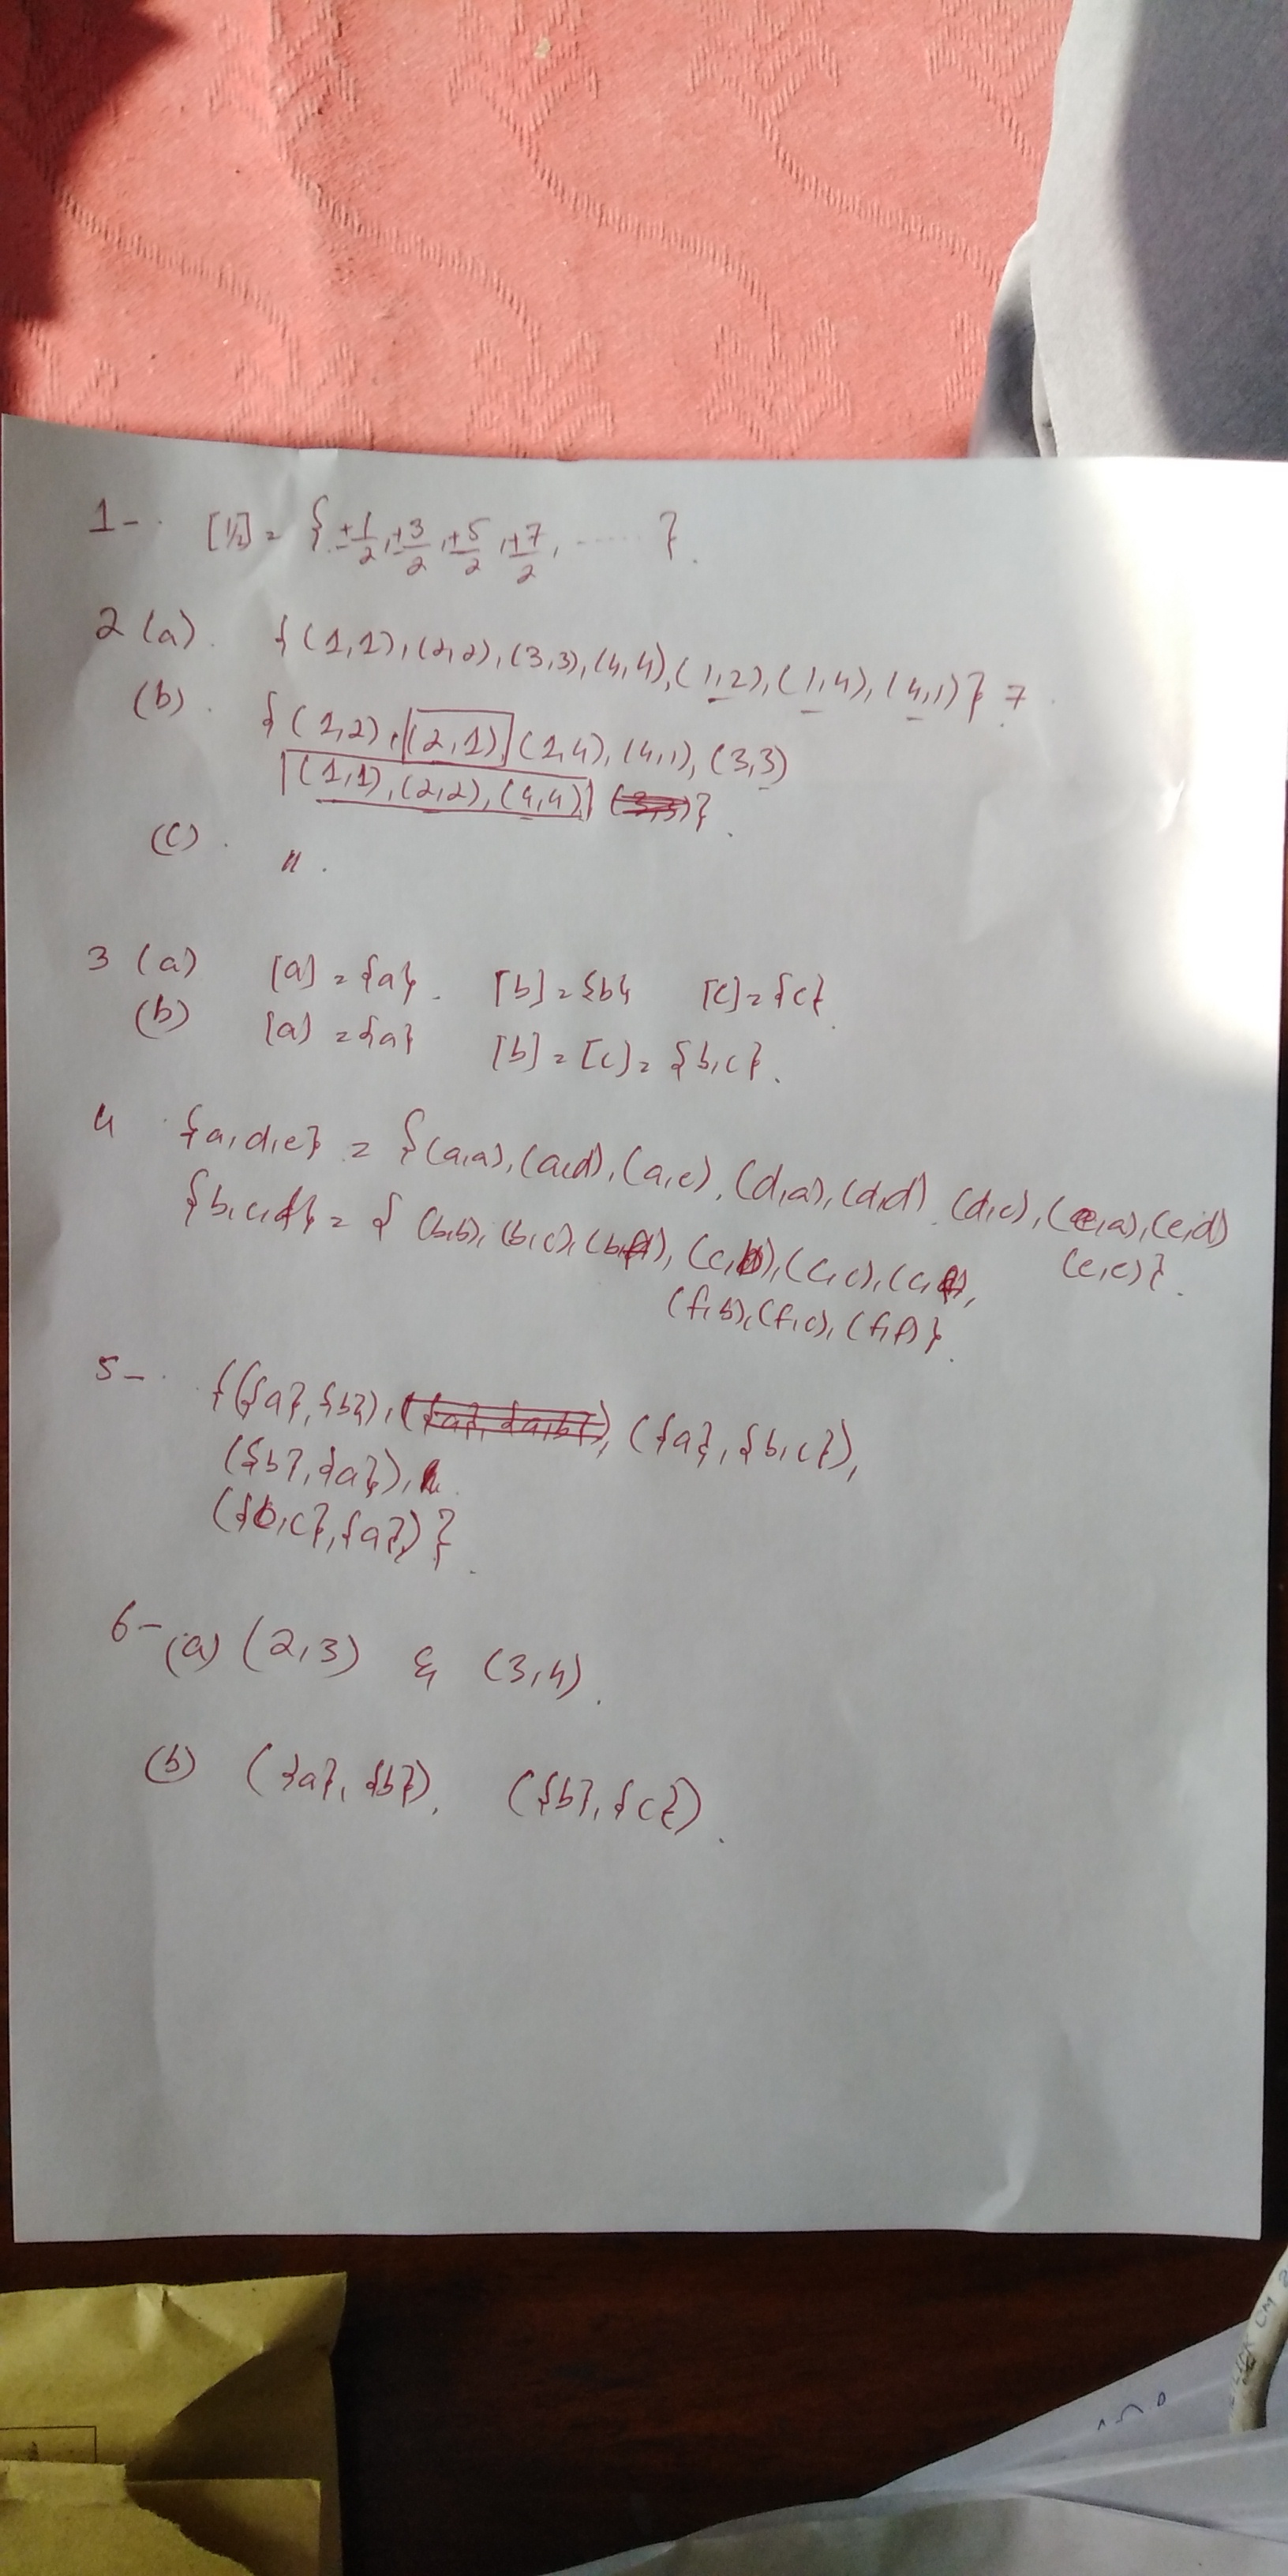 1- . [1/2] = { ±1/2, ±3/2, ±5/2, ±7/2, ..... }.
2 (a). {(1,1),(2,2),(3,3),(4,4),(1,2),(1,4),(4,1)} 7.
(b). {(1,2),(2,1),(1,4),(4,1),(3,3)
(1,1),(2,2),(4,4), (3,3)}.
(c). " .
3 (a) [a] = {a}. [b] = {b} [c] = {c}.
(b) [a] = {a} [b] = [c] = {b,c}.
4 {a,d,e} = {(a,a),(a,d),(a,e),(d,a),(d,d),(d,e),(e,a),(e,d)
(e,e)}.
{b,c,f} = {(b,b),(b,c),(b,f),(c,b),(c,c),(c,f),
(f,b),(f,c),(f,f)}.
5- . {({a},{b}),({a},{a,b}),({a},{b,c}),
({b},{a}),
({b,c},{a})}.
6- (a) (2,3) & (3,4).
(b) ({a},{b}). ({b},{c}).